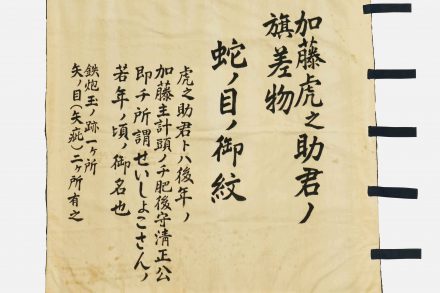 加藤虎之助君ノ
旗差物
蛇ノ目ノ御紋
虎之助君トハ後年ノ
加藤主計頭ノチ肥後守清正公
即チ所謂せいしょこさんノ
若年ノ頃ノ御名也
鉄炮玉ノ跡一ヶ所
矢ノ目(矢疵)二ヶ所有之